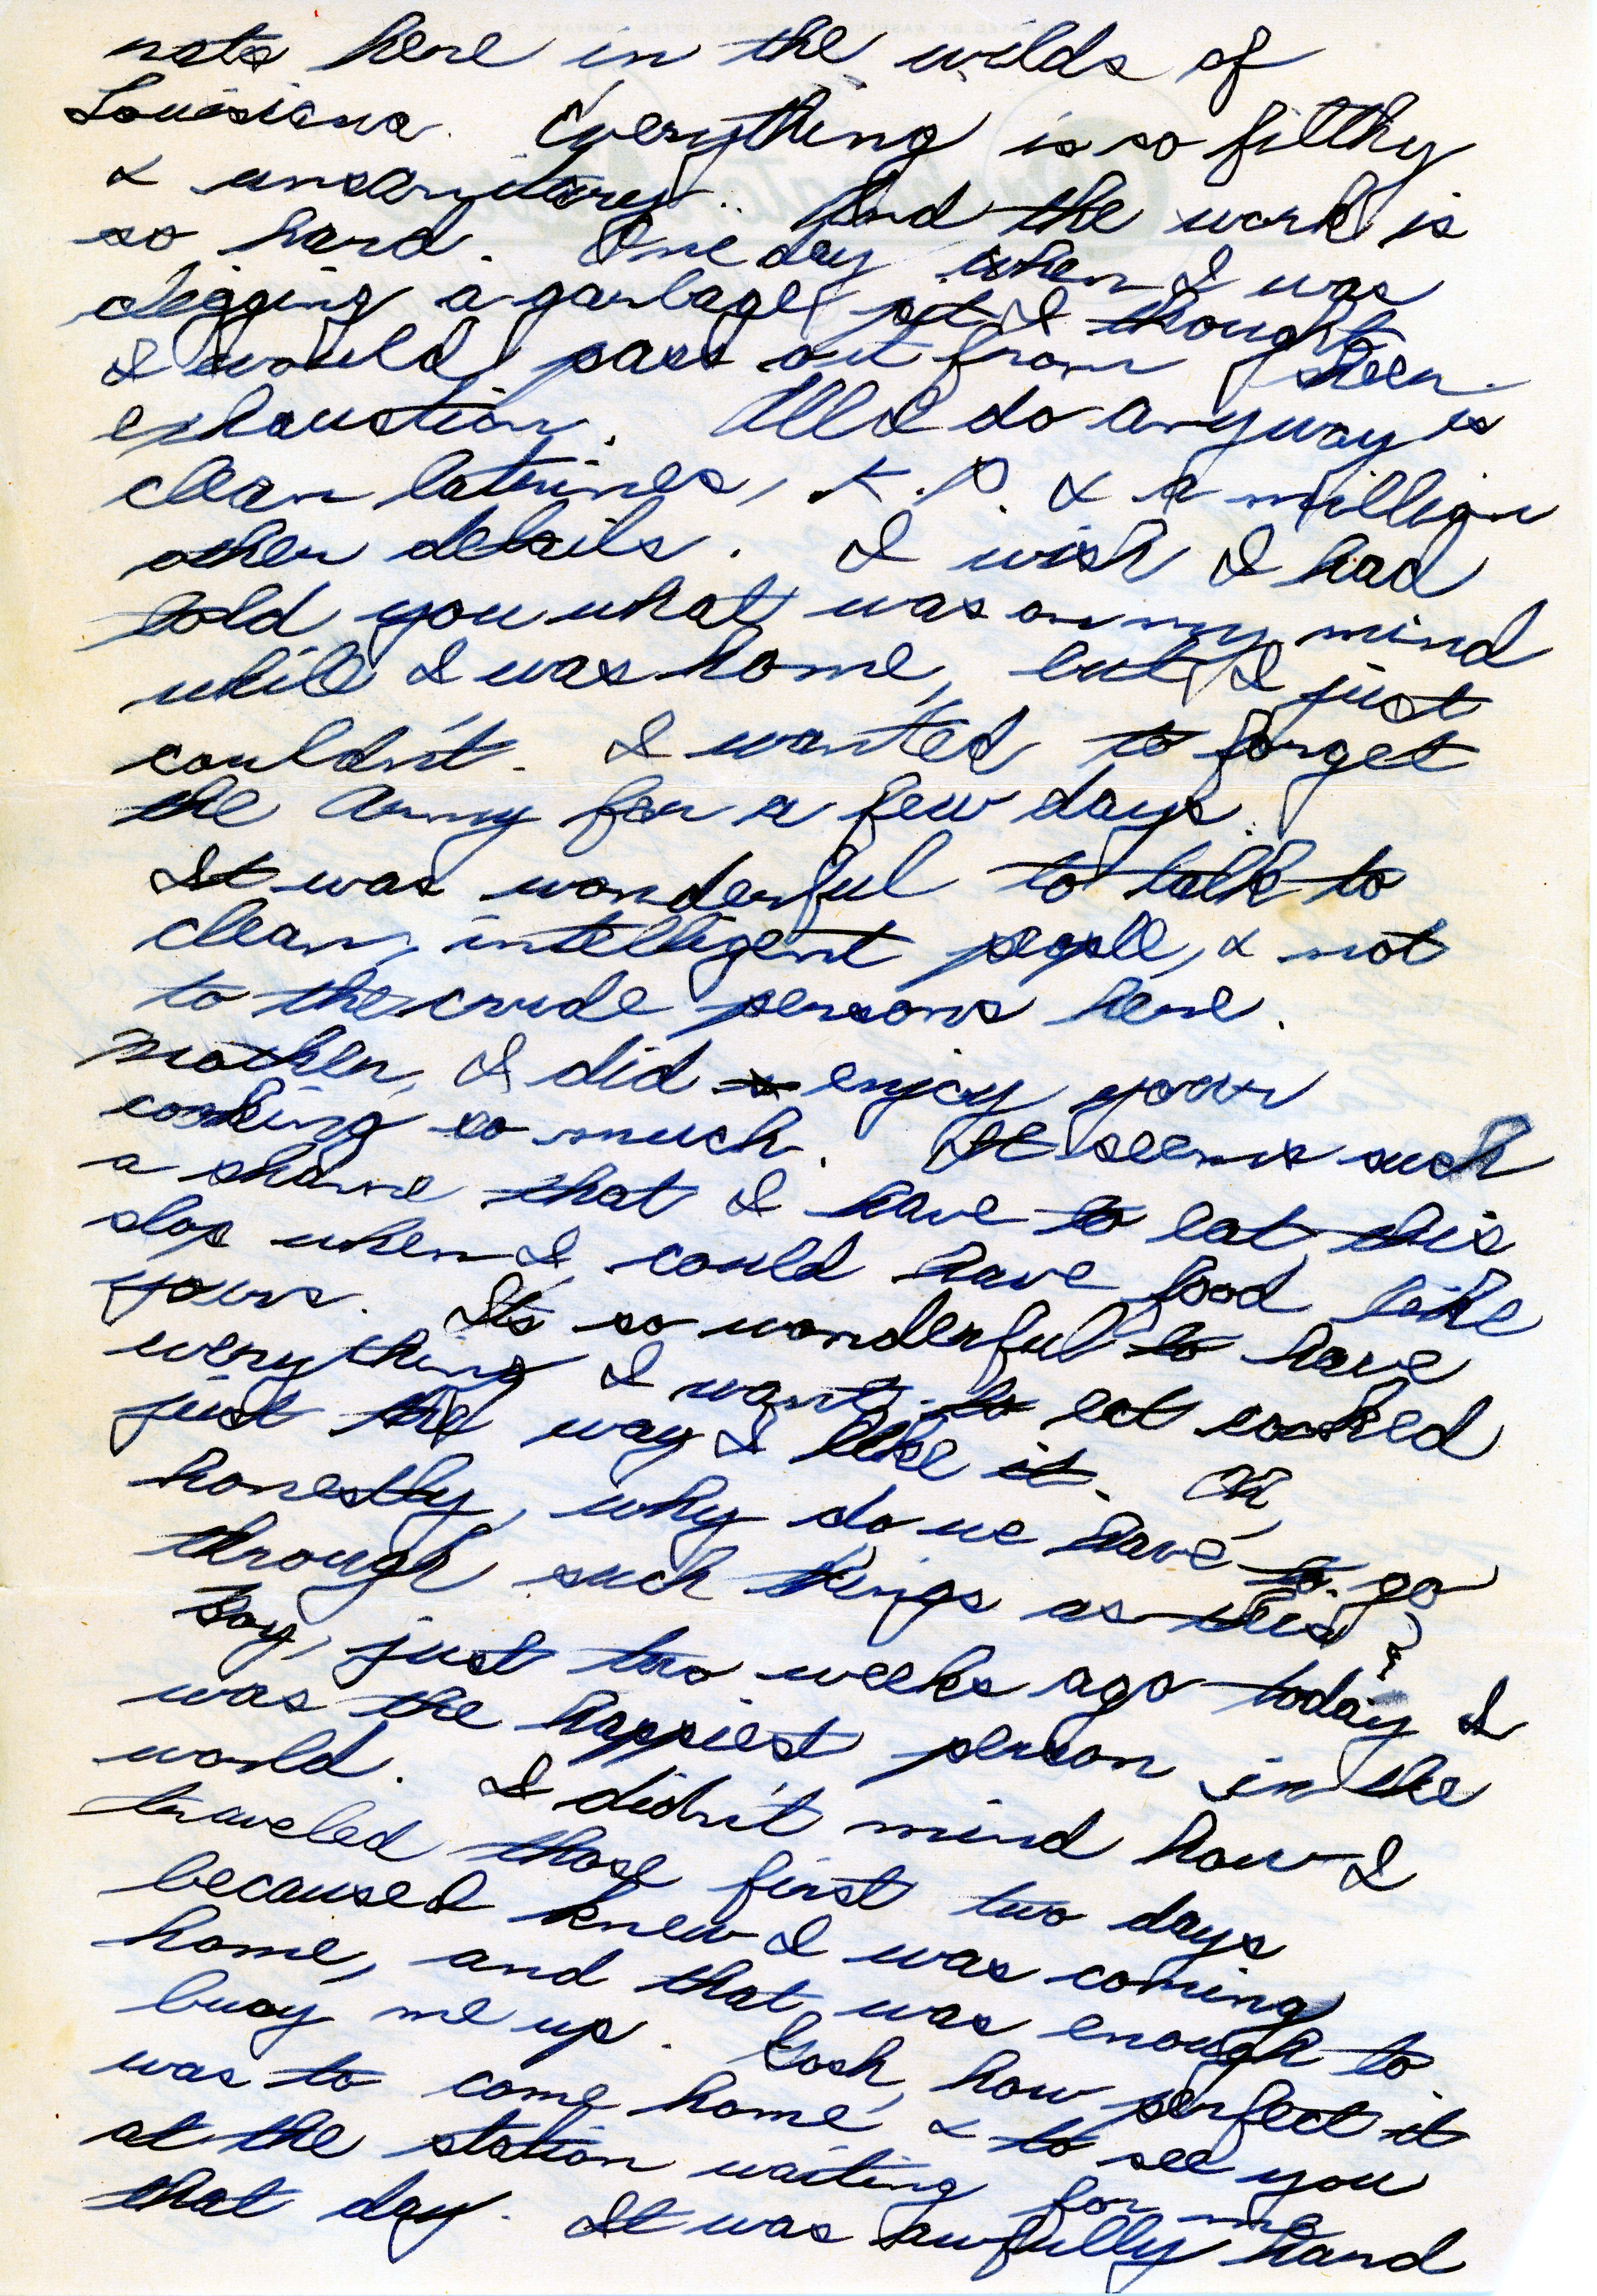 nots here in the wilds of
Louisiana. Everything is so filthy
& unsanitary. And the work is
so hard. One day when I was
digging a garbage pit I thought
I would pass out from sheer
exhaustion. All I do anyway is
clean latrines, K.P. & a million
other details. I wish I had
told you what was on my mind
while I was home, but I just
couldn't. I wanted to forget
the Army for a few days.
It was wonderful to talk to
clean, intelligent people, & not
to the crude persons here.
Mother, I did enjoy your
cooking so much. It seems such
a shame that I have to eat this
slop when I could have food like
yours. It's so wonderful to have
everything I want to eat cooked
just the way I like it. Oh,
honestly, why do we have to go
through such things as this?
Boy, just two weeks ago today I
was the happiest person in the
world. I didn't mind how I
traveled those first two days
because I knew I was coming
home, and that was enough to
buoy me up. Gosh, how perfect it
was to come home & to see you
at the station waiting for me
that day. It was awfully hard